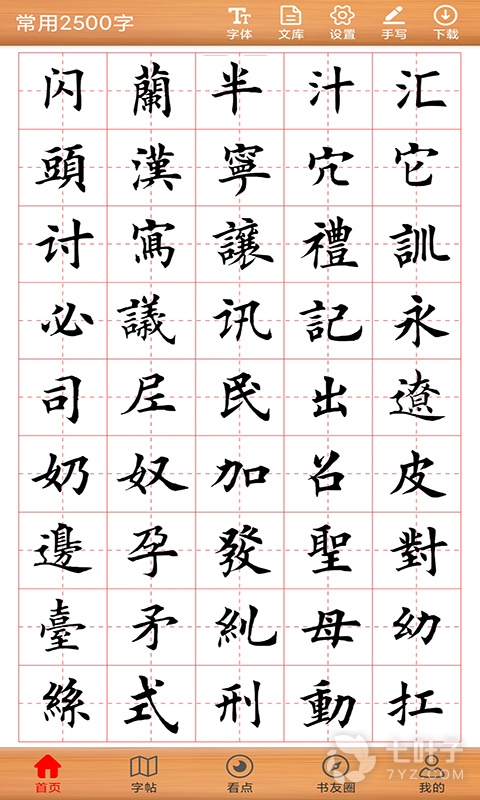 常用2500字
字体 文库 设置 手写 下载
闪 蘭 半 汁 汇
頭 漢 寧 穴 它
讨 寫 讓 禮 訓
必 議 讯 記 永
司 尼 民 出 遼
奶 奴 加 召 皮
邊 孕 發 聖 對
臺 矛 糾 母 幼
絲 式 刑 動 扛
七叶子
7YZ.COM
首页 字帖 看点 书友圈 我的